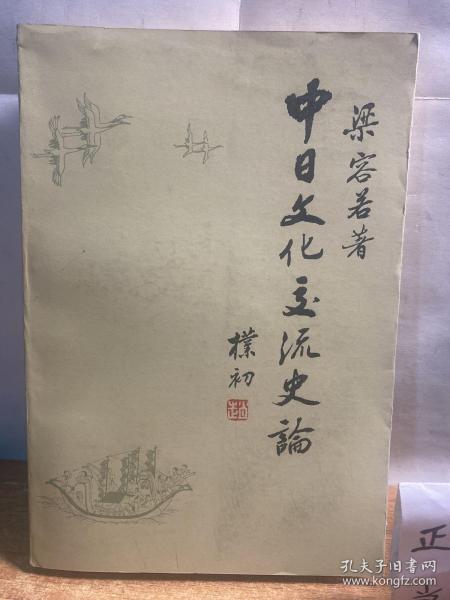 梁容若著
中日文化交流史論
樸初
正
孔夫子旧书网
www.kongfz.com